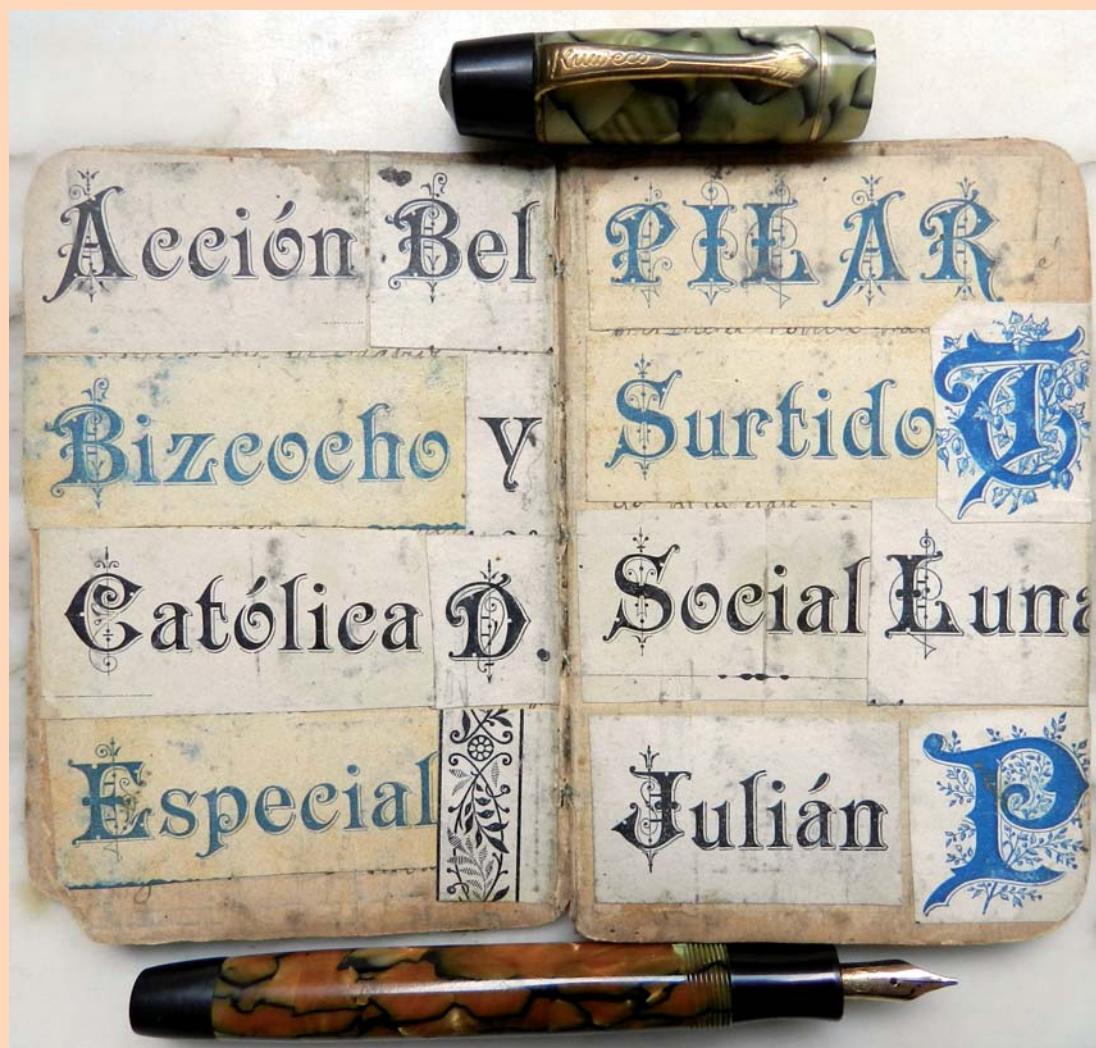 Acción Bel
Bizcocho y
Católica D.
Especial
PILAR
Surtido T
Social Luna
Julián P